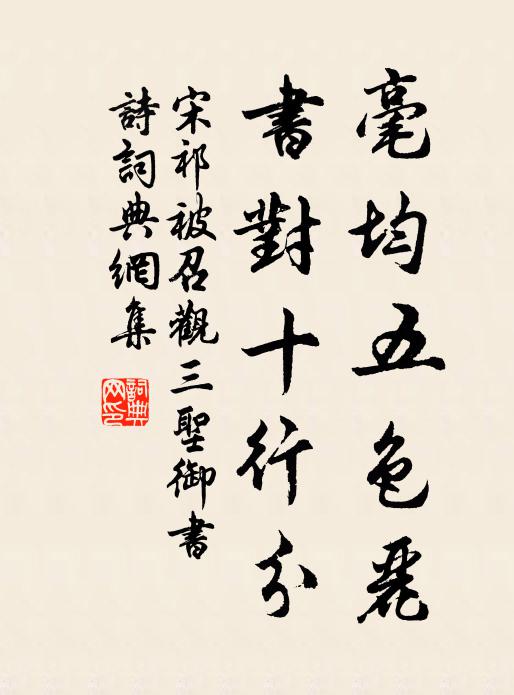 毫均五色麗
書對十行分
宋祁被召觀三聖御書
詩詞典網集
詞典
网印